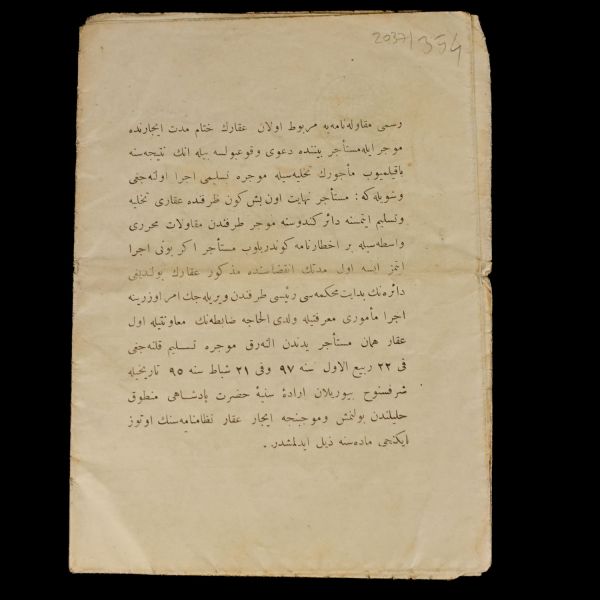 2037/354
رسمی مقاوله‌نامه‌یه مربوط اولان عقارك ختام مدت ایجارنده
موجر ایله مستأجر بیننده دعوی وقوعبولسه بیله انك نتیجه‌سنه
باقیلمیوب مأجورك تخلیه‌سیله موجره تسلیمی اجرا اولنه‌جغی
وشویله‌که : مستأجر نهایت اون بش کون ظرفنده عقاری تخلیه
وتسلیم ایتمسنه دائر کندوسنه موجر طرفندن مقاولات محرری
واسطه‌سیله بر اخطارنامه کوندریلوب مستأجر اکر بونی اجرا
ایتمز ایسه اول مدتك انقضاسنده مذکور عقارك بولندیغی
دائره‌نك بدایت محکمه‌سی رئیسی طرفندن ویریله‌جك امر اوزرینه
اجرا مأموری معرفتیله ولدی الحاجه ضابطه‌نك معاونتیله اول
عقار همان مستأجر یدندن النه‌رق موجره تسلیم قلنه‌جغی
فی ٢٢ ربیع الاول سنه ٩٧ وفی ٢١ شباط سنه ٩٥ تاریخیله
شرفسنوح بیوریلان ارادهٔ سنیهٔ حضرت پادشاهی منطوق
جلیلندن بولنمش وموجبنجه ایجار عقار نظامنامه‌سنك اوتوز
ایکنجی ماده‌سنه ذیل ایدلمشدر .